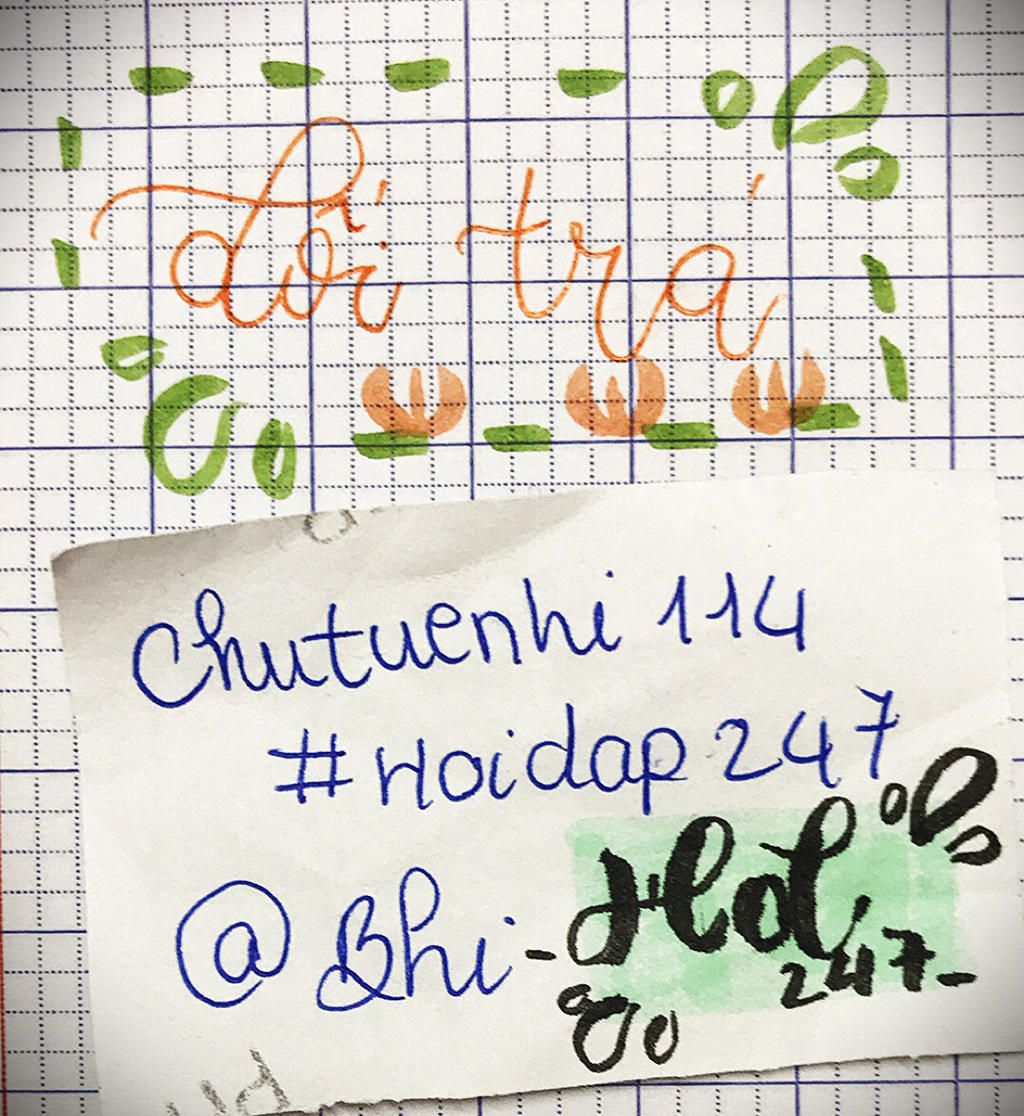 dối trá
Chutuenhi 114
#Hoidap247
@Bhi - Hd
247-